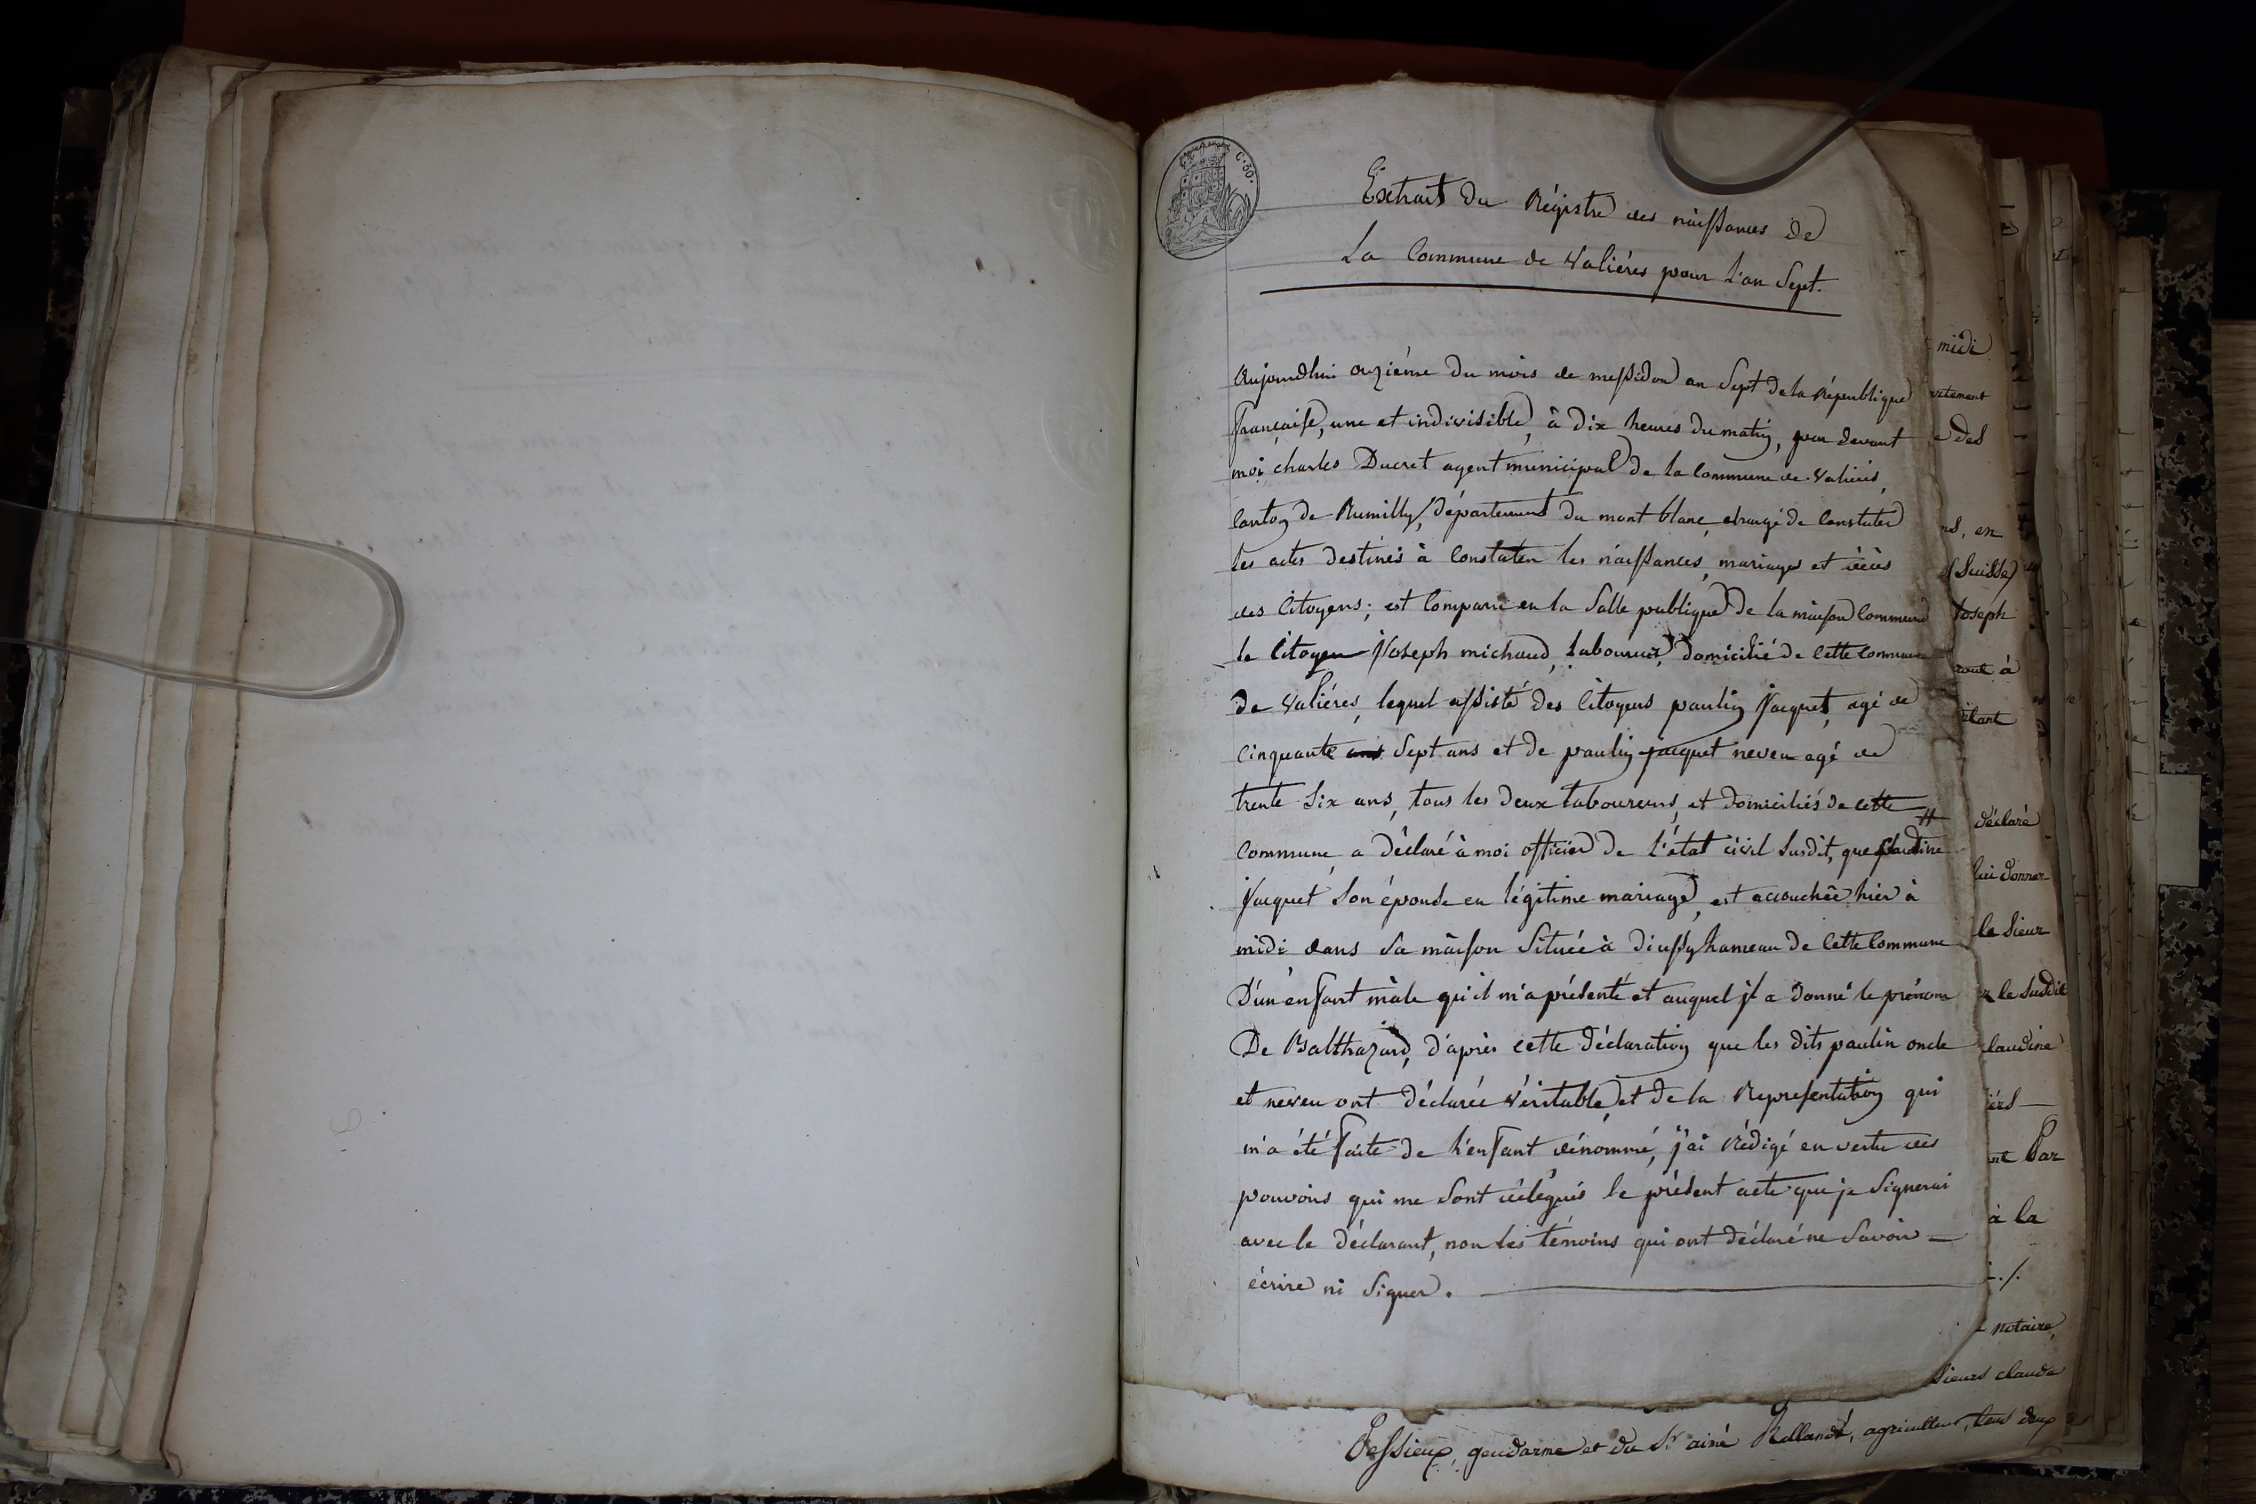 C. 30.
Extrait du Régistre des naissances de
La Commune de Valiéres pour L'an Sept.
Aujourdhui onziéme du mois de messidor an Sept de la République
française, une et indivisible, à dix heures du matin, par devant
moi charles Ducret agent municipal de la Commune de Valiéres,
Canton de Rumilly, département du mont blanc chargé de Constater
les actes destinés à Constater les naissances, mariages et décès
des Citoyens; est Comparu en la Salle publique de la maison Commune
le Citoyen Joseph michaud, laboureur, domicilié de Cette Commune
de Valiéres, lequel assisté des Citoyens paulin Jacquet, agé de
Cinquante ans Sept ans et de paulin jacquet neveu agé de
trente Six ans, tous les deux laboureurs, et domiciliés de cette
Commune, a déclaré à moi officier de L'état civil Susdit, que Claudine
Jacquet Son épouse en légitime mariage, est accouchée hier à
midi dans Sa maison Située à hameau de Cette Commune
D'un enfant mâle qu'il m'a présenté et auquel jl a donné le prénom
De Balthazard, d'après cette déclaration que les dits paulin oncle
et neveu ont déclarée Véritable, et de la Représentation qui
m'a été faite de L'enfant dénommé, j'ai Rédigé en vertu des
pouvoirs qui me Sont délégués le présent acte que je Signerai
avec le déclarant, non les témoins qui ont déclaré ne Savoir
écrire ni Signer.
midi
des
en
(Suisse)
Joseph
à
déclaré
lui donner
le Sieur
le Susdit
Claudine
Par
à la
notaire,
Sieurs claude
Bessieux, gendarme et du Sr ainé agriculteur, tous deux